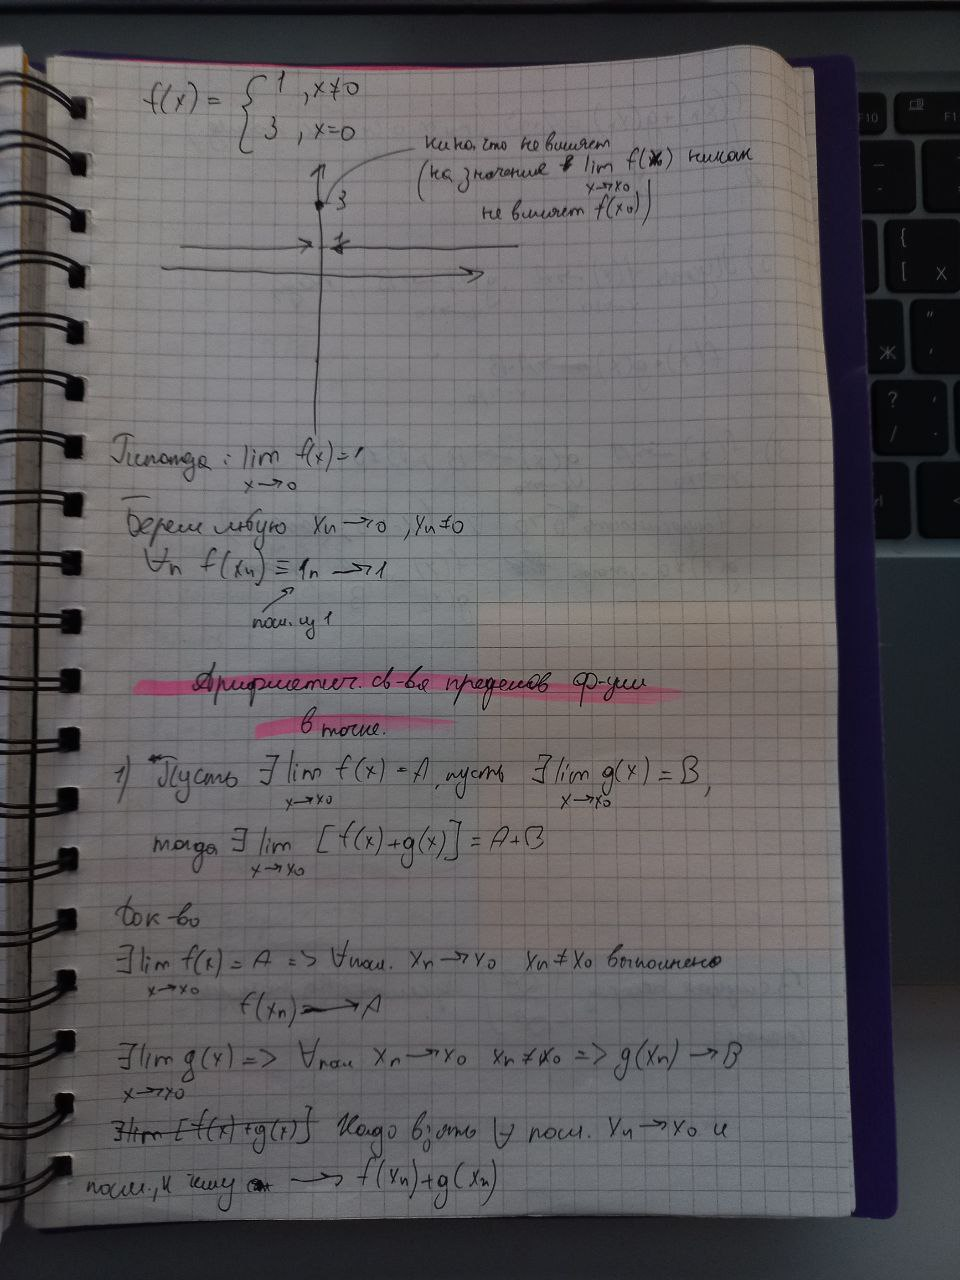 f(x) = { 1 , x≠0
3 , x=0
никого не влияет
(на значение lim f(x) никак
x→x₀
не влияет f(x₀))
3
1
lim f(x)=1
x→0
Берем любую xₙ→0 , xₙ≠0
∀n f(xₙ) ≡ 1ₙ → 1
посл. из 1
Арифметич. св-ва пределов ф-ции
в точке.
1) Пусть ∃ lim f(x) = A, пусть ∃ lim g(x) = B,
x→x₀ x→x₀
тогда ∃ lim [f(x)+g(x)] = A+B
x→x₀
Док-во
∃ lim f(x) = A => ∀ посл. xₙ→x₀ xₙ≠x₀ выполнено
x→x₀
f(xₙ) → A
∃ lim g(x) => ∀ посл xₙ→x₀ xₙ≠x₀ => g(xₙ) → B
x→x₀
∃ lim [f(x)+g(x)] Надо взять ∀ посл. xₙ→x₀ и
посм., к чему → f(xₙ)+g(xₙ)
F10
F1
{
[ Х
"
Ж '
? ,
/ .